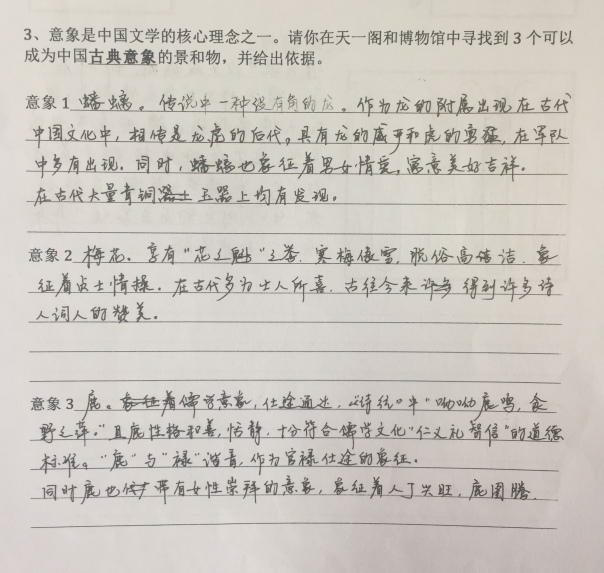 3、意象是中国文学的核心理念之一。请你在天一阁和博物馆中寻找到 3 个可以
成为中国古典意象的景和物，并给出依据。
意象 1 蟠螭。传说中一种没有角的龙。作为龙的附属出现在古代
中国文化中，相传是龙虎的后代，具有龙的威严和虎的勇猛，在军队
中多有出现。同时，蟠螭也象征着男女情爱，寓意美好吉祥。
在古代大量青铜器 玉器上均有发现。
意象 2 梅花。享有“花之魁”之誉。寒梅傲雪，脱俗高洁，象
征着贞士情操。在古代多为士人所喜，古往今来 得到许多诗
人词人的赞美。
意象 3 鹿。儒学意象，仕途通达，《诗经》中“呦呦鹿鸣，食
野之苹。”且鹿性格和善，恬静，十分符合儒学文化“仁义礼智信”的道德
标准。“鹿”与“禄”谐音，作为官禄仕途的象征。
同时鹿也带有女性崇拜的意象，象征着人丁兴旺，鹿图腾。